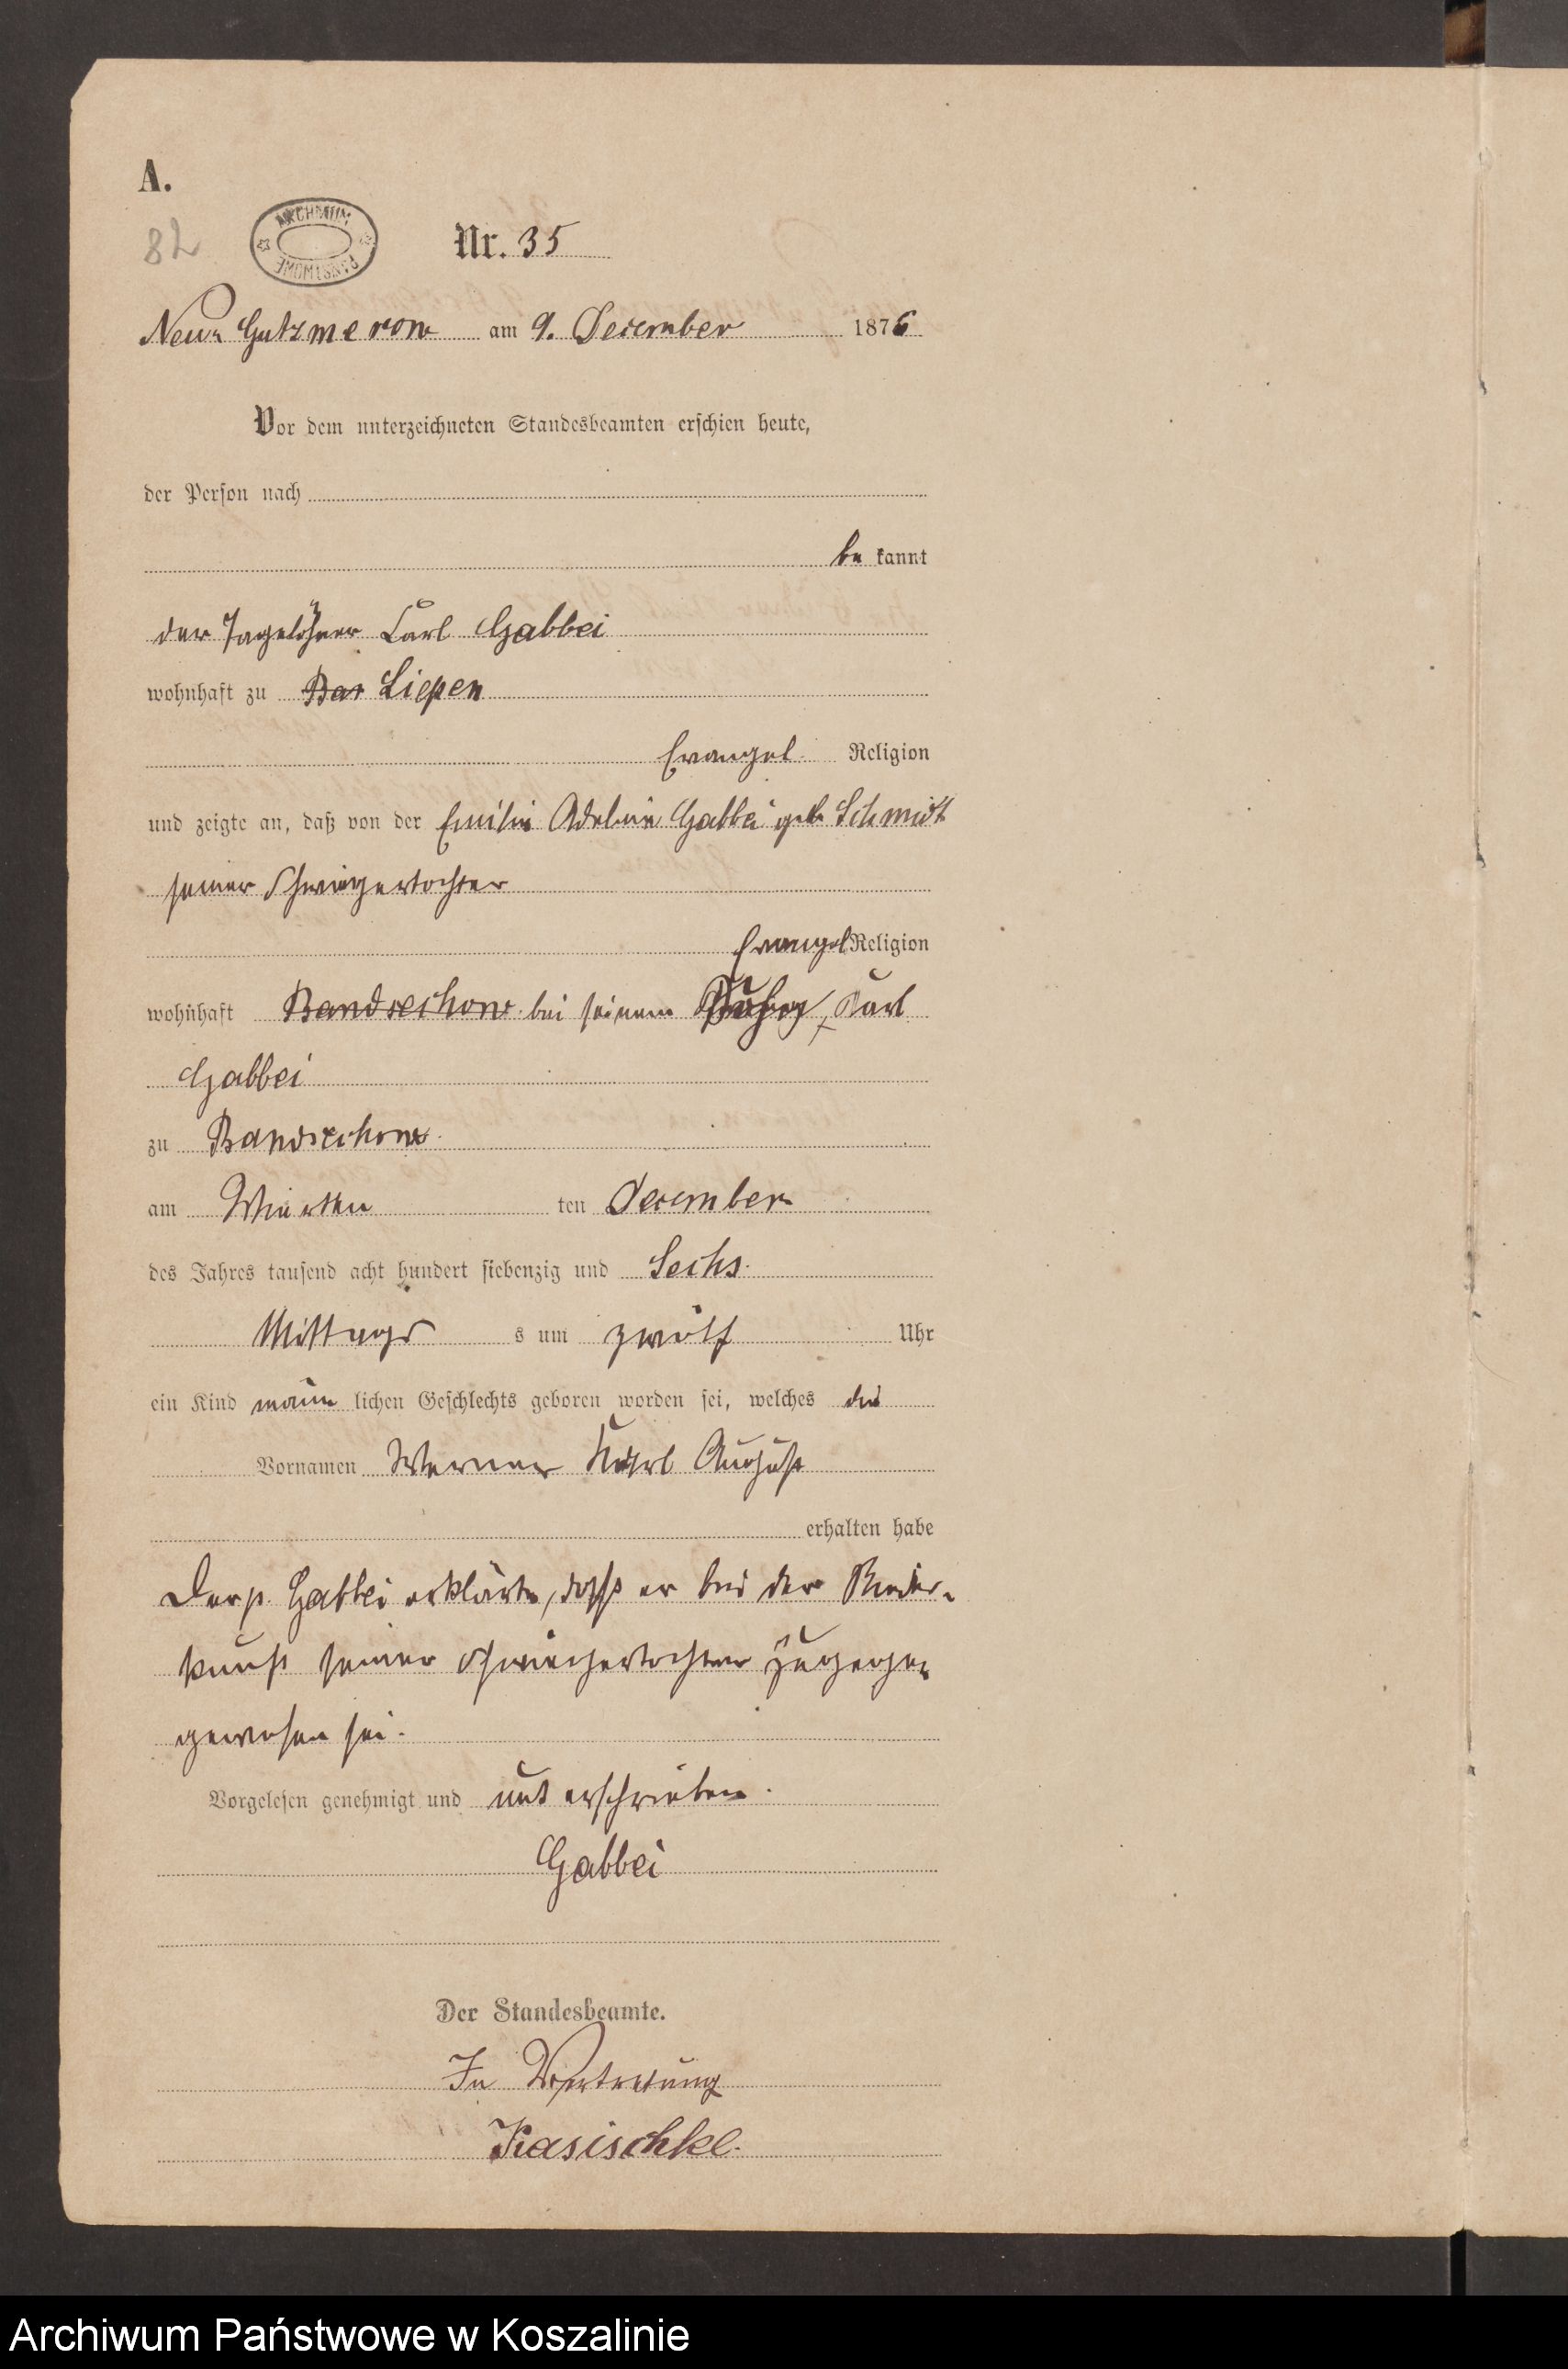 A.
82
ARCHIWUM PAŃSTWOWE
Nr. 35
Neu-Gutzmerow am 9. December 1876
Vor dem unterzeichneten Standesbeamten erschien heute,
der Person nach
be kannt
der Tagelöhner Carl Gabbei
wohnhaft zu Bar Liepen
Evangel. Religion
und zeigte an, daß von der Emilie Adeline Gabbei geb Schmidt
seiner Schwiegertochter
Evangel Religion
wohnhaft Bandsechow bei seinem Karl
Gabbei
zu Bandsechow
am Vierten ten December
des Jahres tausend acht hundert siebenzig und Sechs.
Mittags s um zwölf Uhr
ein Kind männ lichen Geschlechts geboren worden sei, welches die
Vornamen Werner Karl August
erhalten habe
Der p. Gabbei erklärte, daß er bei der Nieder-
kunft seiner Schwiegertochter zugegen
gewesen sei.
Vorgelesen genehmigt und unterschrieben.
Gabbei
Der Standesbeamte.
In Vertretung
Kasischke.
Archiwum Państwowe w Koszalinie